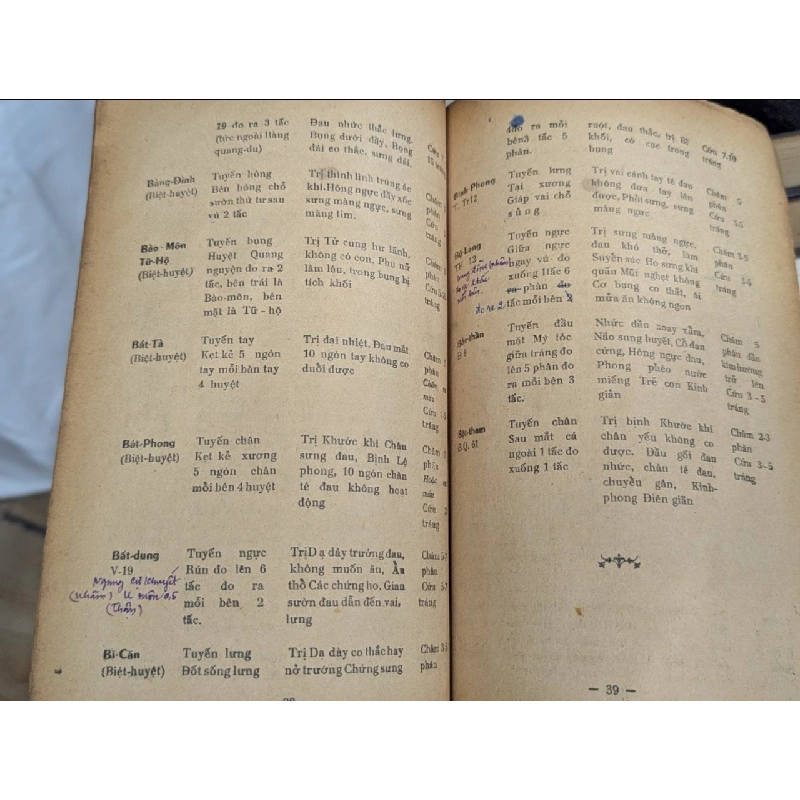 19 đo ra 3 tấc Đau nhức thắc lưng,
(tức ngoài Hàng Bụng dưới đầy, Họng
quang-du) đái co thắc, sưng dái.
Bàng-Đình Tuyến hông Trị thình lình trúng ác
(Biệt-huyệt) Bên hông chỗ khí. Hông ngực đầy xốc Châm
sườn thứ tư sau sưng màng ngực, sưng phân
vú 2 tấc màng tim. Cứu
Bào-Môn Tuyến bụng Trị Tử cung hư lãnh, Châm
Tử-Hộ Huyệt Quang không có con, Phụ nữ phân
(Biệt-huyệt) nguyên đo ra 2 làm lậu, trong bụng bị Cứu
tấc, bên trái là tích khối tráng
Bào-môn, bên
mặt là Tử-hộ
Bát-Tà Tuyến tay Trị đại nhiệt, Đau mắt Châm
(Biệt-huyệt) Kẹt kẻ 5 ngón 10 ngón tay không co phân
tay mỗi bàn tay duỗi được
4 huyệt máu
Cứu
tráng
Bát-Phong Tuyến chân Trị Khước khí Chân Châm
(Biệt-huyệt) Kẹt kẻ xương sưng đau, Bịnh Lệ phân
5 ngón chân phong, 10 ngón chân
mỗi bên 4 huyệt tê đau không hoạt máu
động Cứu
tráng
Bất-dung Tuyến ngực Trị Dạ dầy trướng đau, Châm 5-7
V-19 Rún đo lên 6 không muốn ăn, Ẩu phân
Ngang Cự khuyết tấc đo ra thổ Các chứng ho. Gian Cứu 5-7
(Nhâm) U môn 0,5 mỗi bên 2 sườn đau dẫn đến vai, tráng
(Thận) tấc. lưng
Bì-Căn Tuyến lưng Trị Dạ dày co thắc hay Châm 3-5
(Biệt-huyệt) Đốt sống lưng nở trướng Chứng sưng phân
đo ra mỗi ruột, đau thắc, bị Bĩ Cứu 7-10
bên 3 tấc 5 khối, có cục trong tráng
phân. hung
Bỉnh-Phong Tuyến lưng Trị vai cánh tay tê đau Châm 5
T. Tr12 Tại xương không đưa tay lên phân
Giáp vai chỗ được, Phổi sưng, sưng Cứu 3-5
sủng màng ngực. tráng
Bộ-Lang Tuyến ngực Trị sưng màng ngực, Châm 3-5
Giữa ngực đau khó thở, làm phân
ngay vú đo Suyễn súc Ho sưng khí Cứu 3-5
xuống 1 tấc 6 quản Mũi nghẹt không tráng
phân đo Cơ bụng co thắt, ăi
đo ra 2 tấc mỗi bên 2 mửa ăn không ngon
Tuyến đầu Nhức đầu xoay xẩm, Châm 5
B 5 mặt Mý tóc Não sung huyết, Cổ đau phân dẫn
giữa tráng đo cứng, Hông ngực đau, kim hướng
lên 5 phân đo Phong phéo nước trở lên
ra mỗi bên 3 miếng Trẻ con Kinh Cứu 3-5
tấc. giản tráng
Bộc-tham Tuyến chân Trị bịnh Khước khí Châm 2-3
BQ. 61 Sau mắt cá chân yếu không co phân
ngoài 1 tấc đo được. Đầu gối đau Cứu 3-5
xuống 1 tấc nhức, chân tê đau, tráng
chuyển gân, Kinh-
phong Điên giản
— 39 —